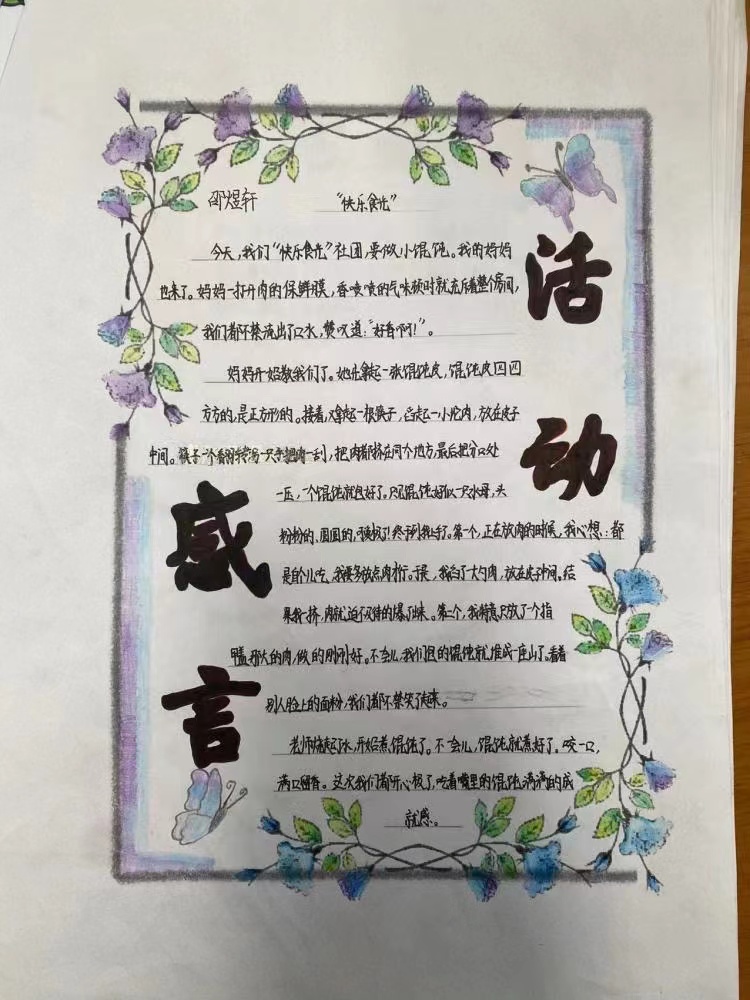 活动感言
邵煜轩 “快乐食光”
今天，我们“快乐食光”社团，要做小馄饨。我的妈妈
也来了。妈妈一打开肉的保鲜膜，香喷喷的气味顿时就充斥着整个房间，
我们都不禁流出了口水，赞叹道：“好香啊！”。
妈妈开始教我们了。她先拿起一张馄饨皮，馄饨皮四四
方方的，是正方形的。接着，拿起一根筷子，舀起一小坨肉，放在皮子
中间。筷子一刮，把肉都挤在同个地方，最后把分口处
一压，一个馄饨就包好了。只见馄饨好似一只水母，头
粉粉的、圆圆的，可爱极了！终于到我上手了。第一个，正在放肉的时候，我心想：都
是自个儿吃，我要多放点肉。于是，我舀了大勺肉，放在皮子中间。结
果我一挤，肉就迫不及待的爆了出来。第二个，我特意只放了个指
甲盖那大的肉，做的刚刚好。不会儿，我们包的馄饨就堆成一座山了。看着
别人脸上的面粉，我们都不禁笑了起来。
老师烧起了水，开始煮馄饨了。不一会儿，馄饨就煮好了。咬一口，
满口留香。这次我们都开心极了，吃着嘴里的馄饨，满满的成
就感。